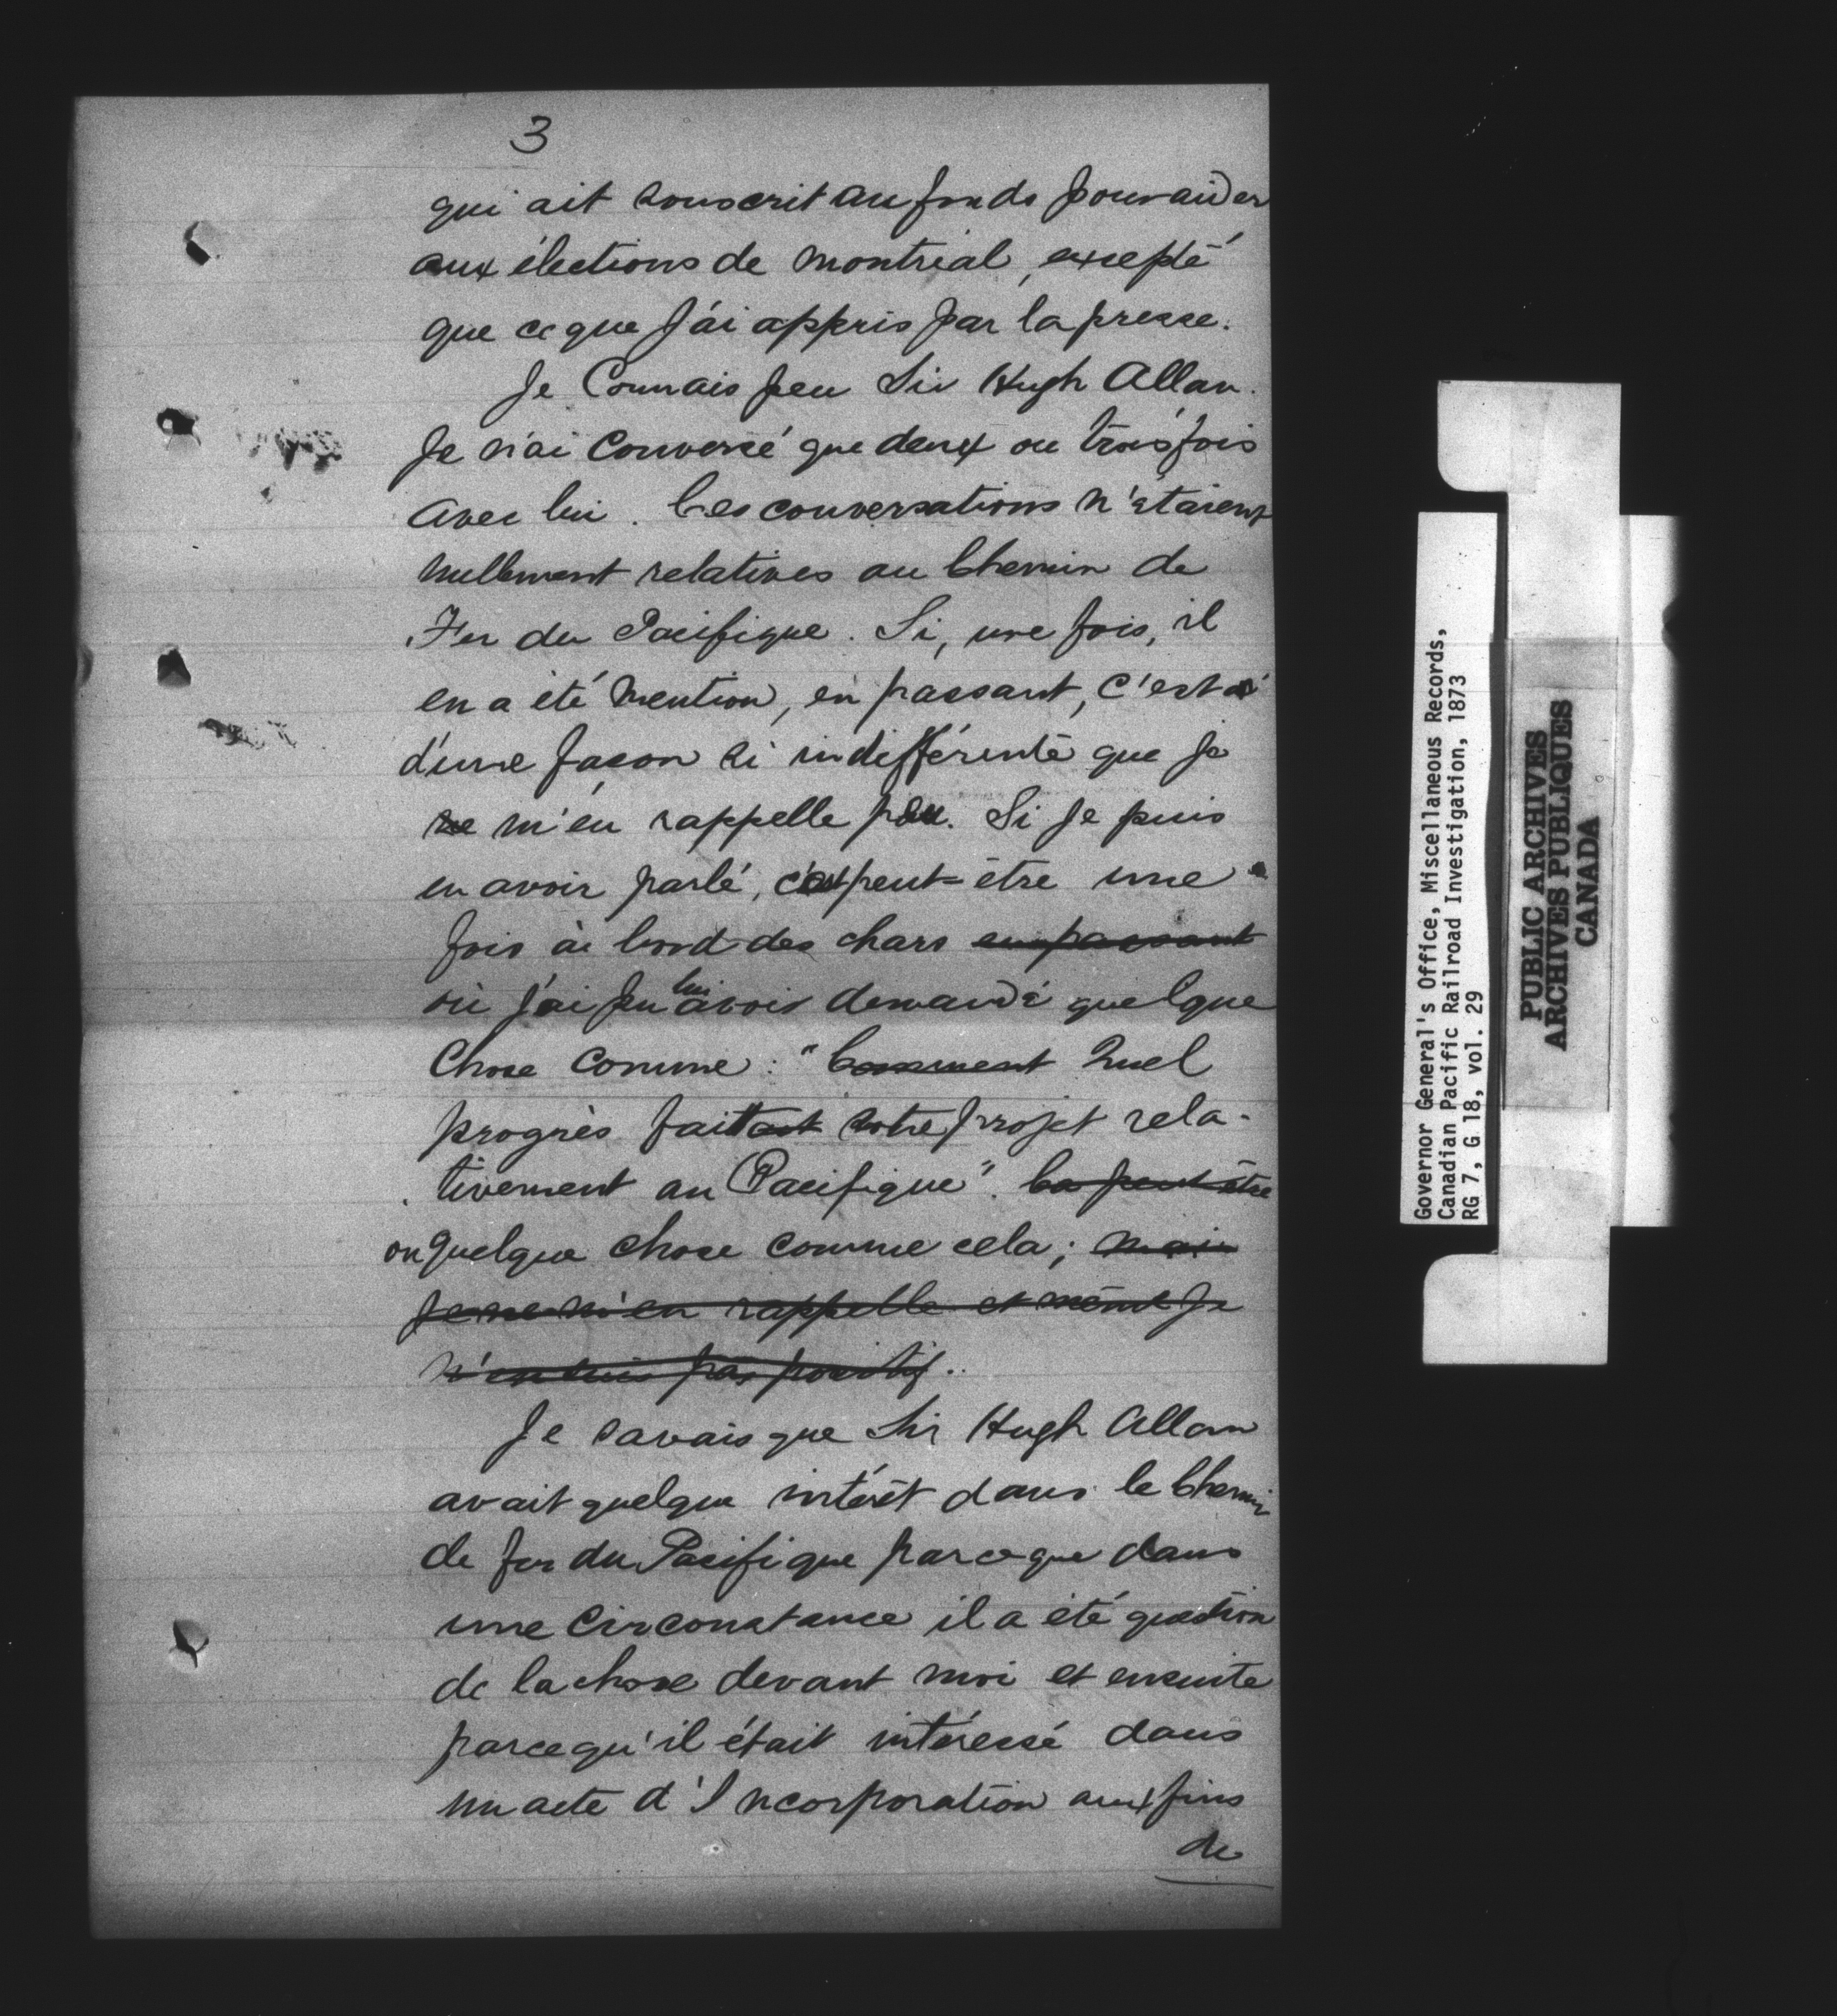 3
qui ait souscrit au fonds pour aider
aux élections de Montréal, excepté
que ce que j'ai appris par la presse.
Je Connais peu Sir Hugh Allan.
Je n'ai Conversé que deux ou trois fois
avec lui. Ces conversations n'étaient
nullement relatives au Chemin de
Fer du Pacifique. Si, une fois, il
en a été mention, en passant, C'est
d'une façon si indifférente que je
ne m'en rappelle peu. Si je puis
en avoir parlé, c'est peut-être une
fois à bord des chars en passant
où j'ai pu lui avoir demandé quelque
Chose comme: "Comment Quel
progrès fait votre projet rela-
tivement au Pacifique". Ca peut être
ou quelque chose comme cela; mais
je ne m'en rappelle et même je
n'en suis pas positif.
Je savais que Sir Hugh Allan
avait quelque intérêt dans le Chemin
de fer du Pacifique parceque dans
une Circonstance il a été question
de la chose devant moi et ensuite
parcequ'il était intéressé dans
un acte d'Incorporation aux fins
de
Governor General's Office, Miscellaneous Records,
Canadian Pacific Railroad Investigation, 1873
RG 7, G 18, vol. 29
PUBLIC ARCHIVES
ARCHIVES PUBLIQUES
CANADA